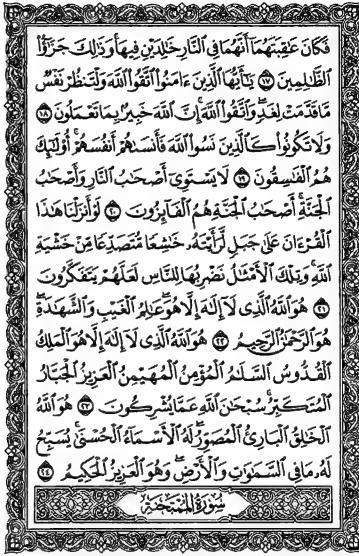 فَكَانَ عَٰقِبَتَهُمَآ أَنَّهُمَا فِي ٱلنَّارِ خَٰلِدَيْنِ فِيهَا ۚ وَذَٰلِكَ جَزَٰٓؤُا۟
ٱلظَّٰلِمِينَ ١٧ يَٰٓأَيُّهَا ٱلَّذِينَ ءَامَنُوا۟ ٱتَّقُوا۟ ٱللَّهَ وَلْتَنظُرْ نَفْسٌ
مَّا قَدَّمَتْ لِغَدٍ ۖ وَٱتَّقُوا۟ ٱللَّهَ ۚ إِنَّ ٱللَّهَ خَبِيرٌۢ بِمَا تَعْمَلُونَ ١٨
وَلَا تَكُونُوا۟ كَٱلَّذِينَ نَسُوا۟ ٱللَّهَ فَأَنسَىٰهُمْ أَنفُسَهُمْ ۚ أُو۟لَٰٓئِكَ
هُمُ ٱلْفَٰسِقُونَ ١٩ لَا يَسْتَوِىٓ أَصْحَٰبُ ٱلنَّارِ وَأَصْحَٰبُ
ٱلْجَنَّةِ ۚ أَصْحَٰبُ ٱلْجَنَّةِ هُمُ ٱلْفَآئِزُونَ ٢٠ لَوْ أَنزَلْنَا هَٰذَا
ٱلْقُرْءَانَ عَلَىٰ جَبَلٍ لَّرَأَيْتَهُۥ خَٰشِعًا مُّتَصَدِّعًا مِّنْ خَشْيَةِ
ٱللَّهِ ۚ وَتِلْكَ ٱلْأَمْثَٰلُ نَضْرِبُهَا لِلنَّاسِ لَعَلَّهُمْ يَتَفَكَّرُونَ
٢١ هُوَ ٱللَّهُ ٱلَّذِى لَآ إِلَٰهَ إِلَّا هُوَ ۖ عَٰلِمُ ٱلْغَيْبِ وَٱلشَّهَٰدَةِ ۖ
هُوَ ٱلرَّحْمَٰنُ ٱلرَّحِيمُ ٢٢ هُوَ ٱللَّهُ ٱلَّذِى لَآ إِلَٰهَ إِلَّا هُوَ ٱلْمَلِكُ
ٱلْقُدُّوسُ ٱلسَّلَٰمُ ٱلْمُؤْمِنُ ٱلْمُهَيْمِنُ ٱلْعَزِيزُ ٱلْجَبَّارُ
ٱلْمُتَكَبِّرُ ۚ سُبْحَٰنَ ٱللَّهِ عَمَّا يُشْرِكُونَ ٢٣ هُوَ ٱللَّهُ
ٱلْخَٰلِقُ ٱلْبَارِئُ ٱلْمُصَوِّرُ ۖ لَهُ ٱلْأَسْمَآءُ ٱلْحُسْنَىٰ ۚ يُسَبِّحُ
لَهُۥ مَا فِي ٱلسَّمَٰوَٰتِ وَٱلْأَرْضِ ۖ وَهُوَ ٱلْعَزِيزُ ٱلْحَكِيمُ ٢٤
سُورَةُ ٱلْمُمْتَحَنَةِ